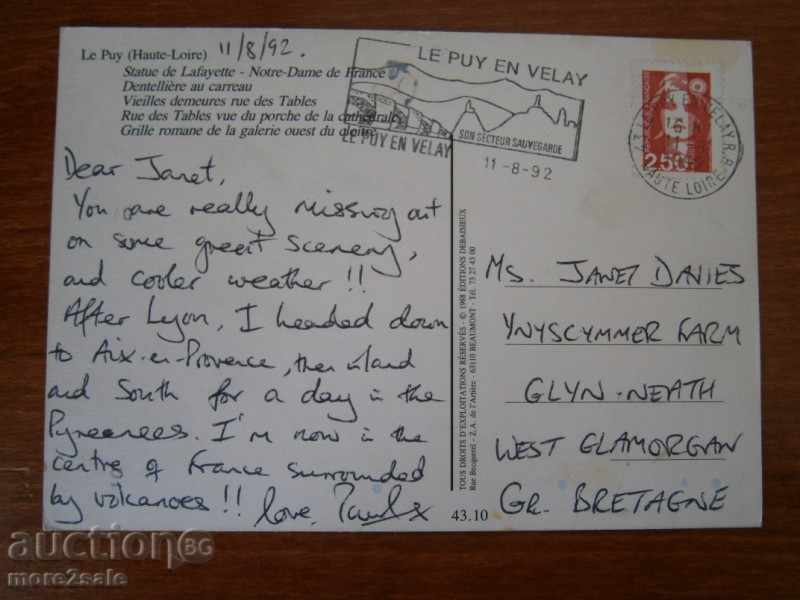 Le Puy (Haute-Loire) 11/8/92.
Statue de Lafayette - Notre-Dame de France
Dentellière au carreau
Vieilles demeures rue des Tables
Rue des Tables vue du porche de la cathédrale
Grille romane de la galerie ouest du cloître
LE PUY EN VELAY
SON SECTEUR SAUVEGARDE
LE PUY EN VELAY
11-8-92
2,50
HAUTE LOIRE
Dear Janet,
You are really missing out
on some great scenery,
and cooler weather!!
After Lyon, I headed down
to Aix-en-Provence, then inland
and South for a day in the
Pyrenees. I'm now in the
centre of France surrounded
by volcanoes!! love, Paul x
TOUS DROITS D'EXPLOITATIONS RÉSERVÉS - © 1988 ÉDITIONS DEBAISIEUX
Rue Becquerel - Z.A. de l'Artière - 63110 BEAUMONT - Tél. 73 27 43 00
43.10
MS. JANET DAVIES
YNYSCYMMER FARM
GLYN-NEATH
WEST GLAMORGAN
GR. BRETAGNE
auctionBG
more2sale